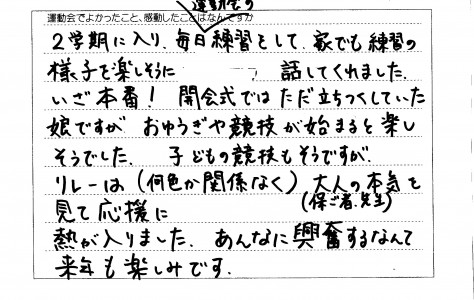 運動会の
運動会でよかったこと、感動したことはなんですか
2学期に入り、毎日練習をして、家でも練習の
様子を楽しそうに 話してくれました。
いざ本番! 開会式ではただ立ちつくしていた
娘ですが おゆうぎや競技が始まると楽し
そうでした。 子どもの競技もそうですが、
リレーは(何色か関係なく)大人の本気を
(保ご者、先生)
見て応援に
熱が入りました。あんなに興奮するなんて
来年も楽しみです。